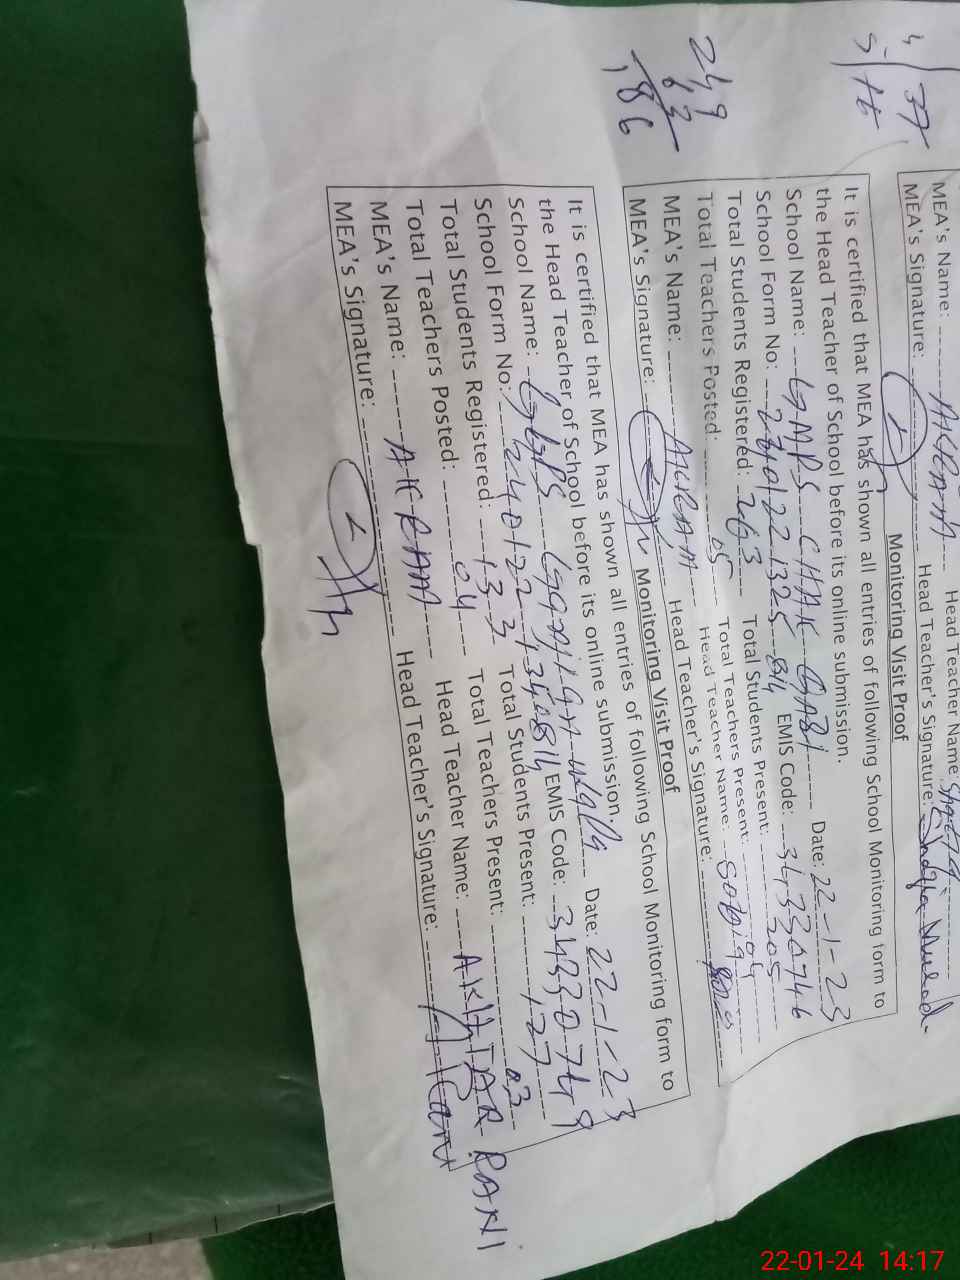 37
249
63
186
MEA's Name: AKRAM Head Teacher Name:
MEA's Signature: Head Teacher's Signature:
Monitoring Visit Proof
It is certified that MEA has shown all entries of following School Monitoring form to
the Head Teacher of School before its online submission.
School Name: GMPS CHAK GABI Date: 22-1-23
School Form No: EMIS Code: 34330746
Total Students Registered: 263 Total Students Present: 205
Total Teachers Posted: 05 Total Teachers Present: 04
MEA's Name: AKRAM Head Teacher Name:
MEA's Signature: Head Teacher's Signature:
Monitoring Visit Proof
It is certified that MEA has shown all entries of following School Monitoring form to
the Head Teacher of School before its online submission.
School Name: GGPS Date: 22-1-23
School Form No: EMIS Code: 34330749
Total Students Registered: 133 Total Students Present: 127
Total Teachers Posted: 04 Total Teachers Present: 03
MEA's Name: AKRAM Head Teacher Name: AKHTAR RANI
MEA's Signature: Head Teacher's Signature:
22-01-24 14:17